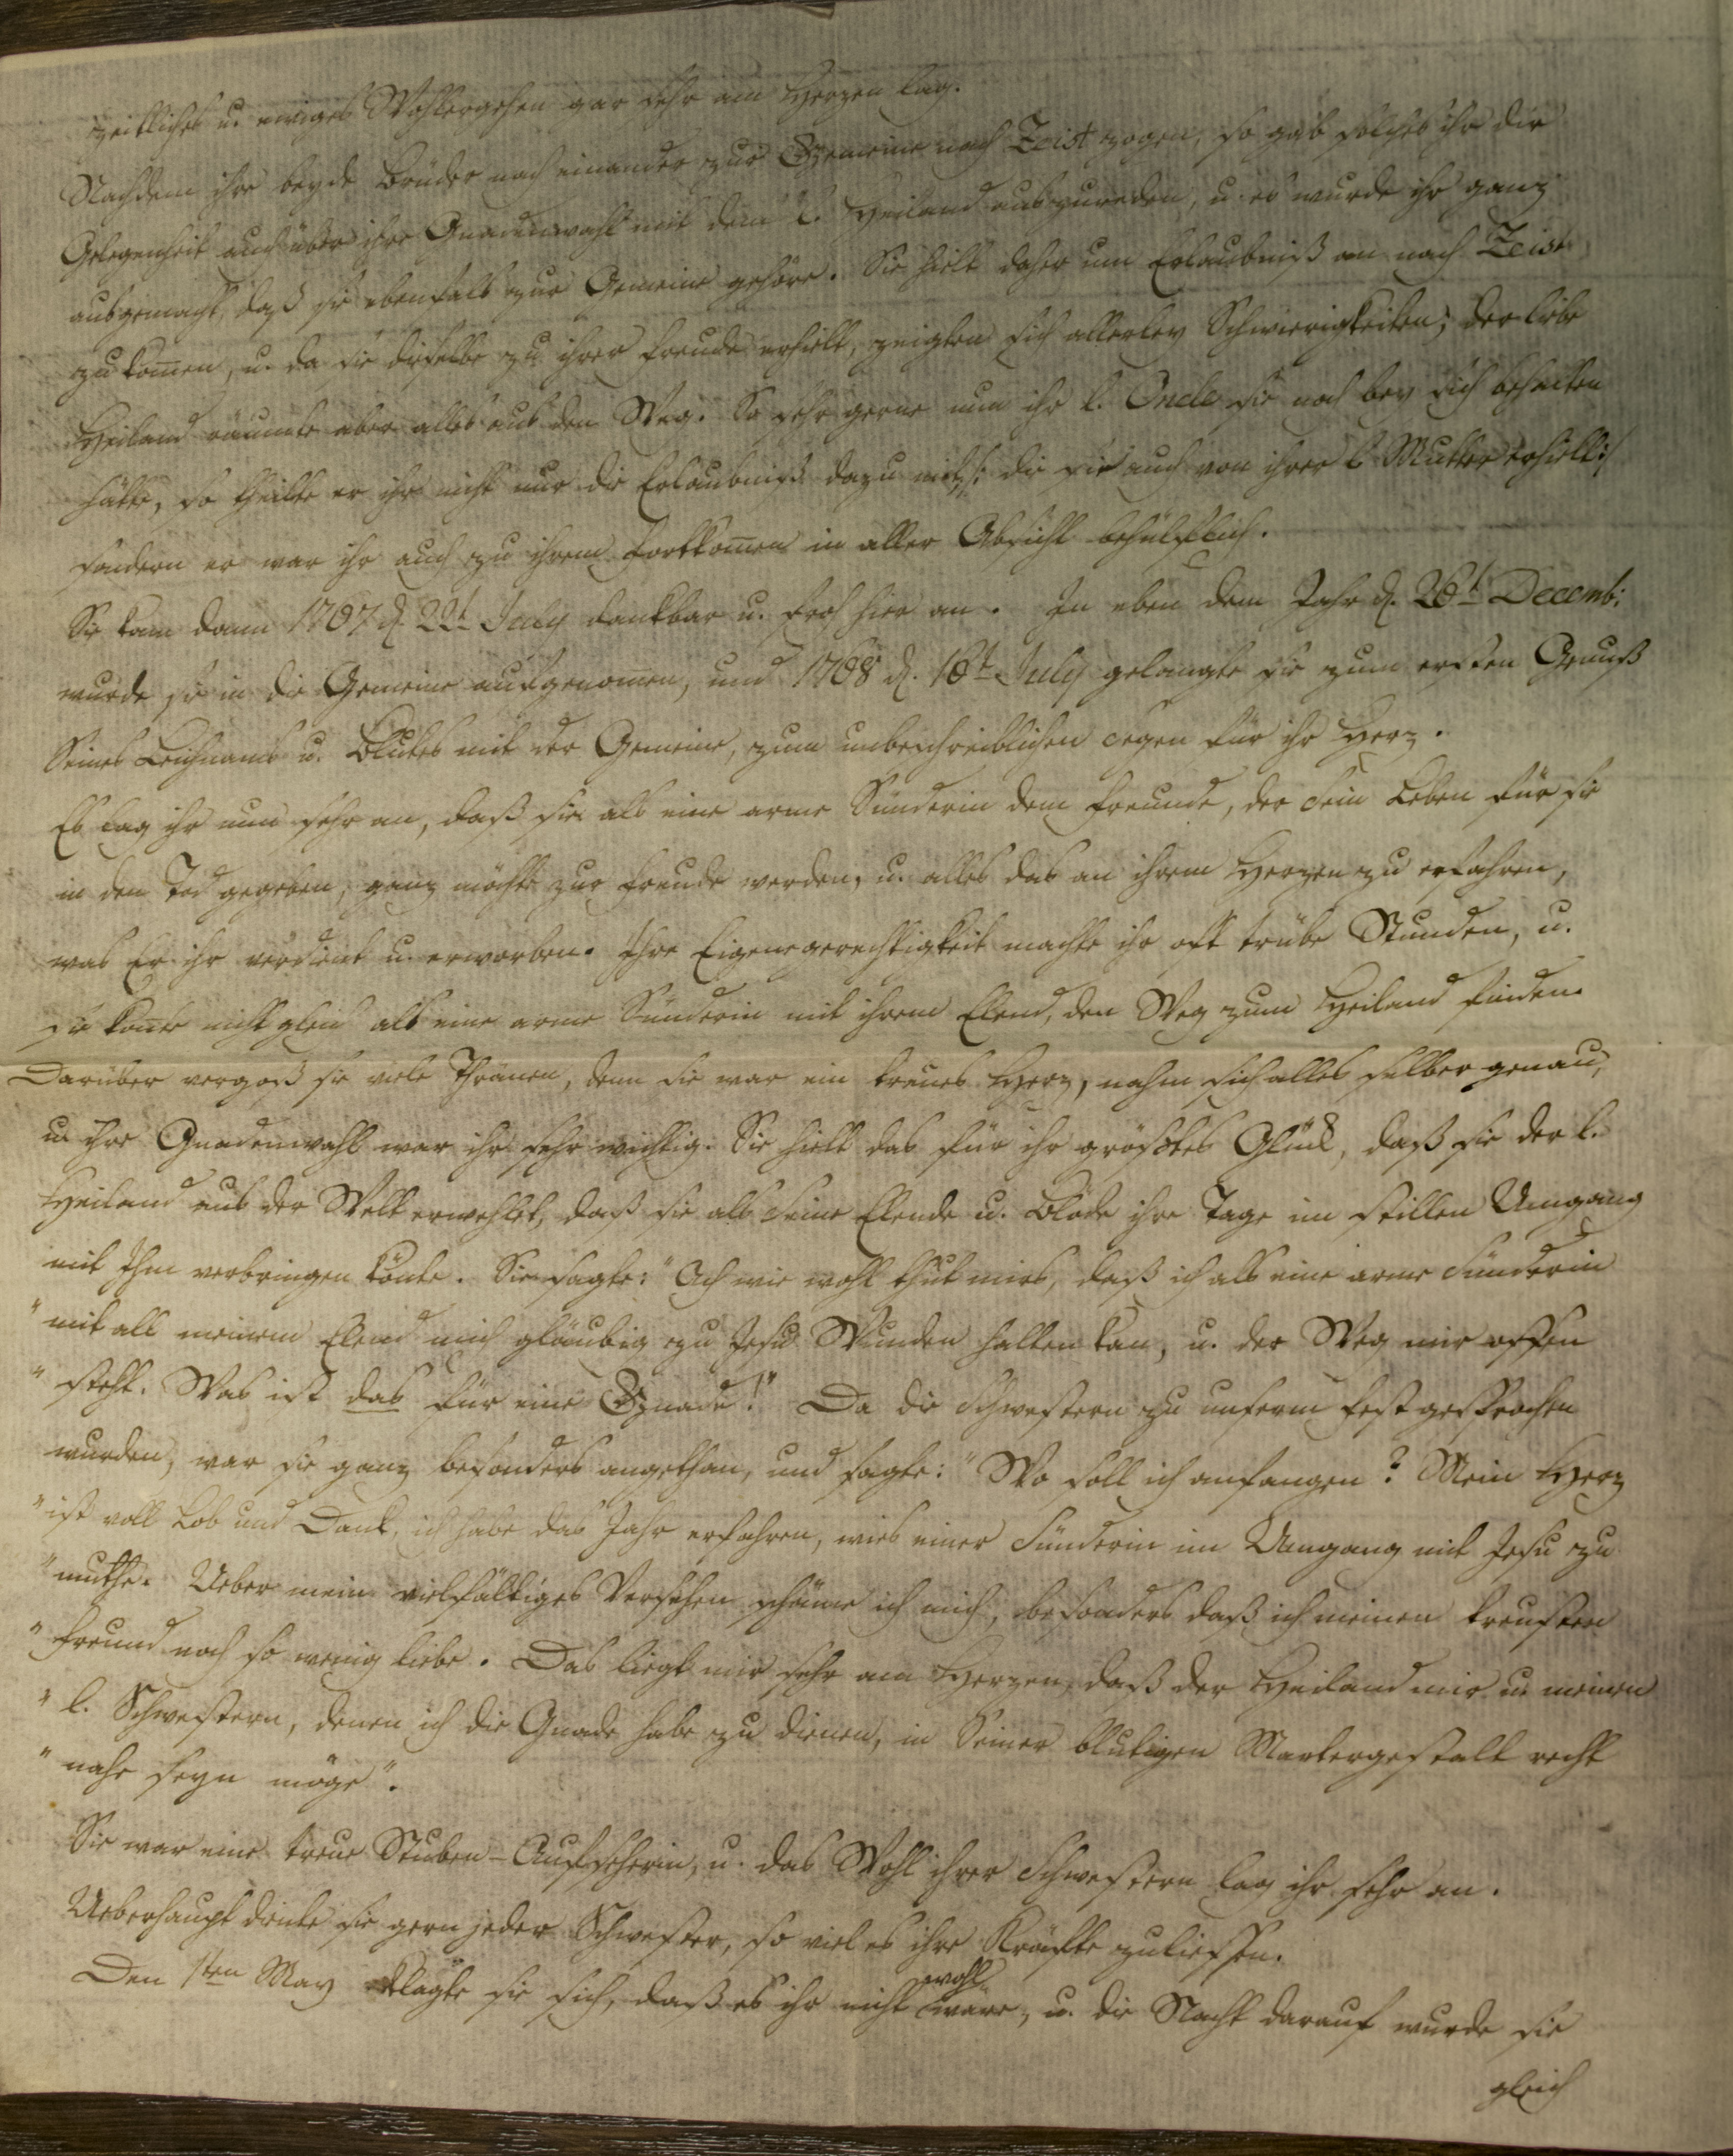 zeitliches u. ewiges Wohlergehen gar sehr am Herzen lag.
Nachdem ihre beyde Brüder nach einander zur Gemeine nach Zeist zogen, so gab solches ihr die
Gelegenheit auch über ihre Gnadenwahl mit dem l. Heiland auszureden, u. es wurde ihr ganz
ausgemacht, daß sie ebenfals zur Gemeine gehöre. Sie hielt daher um Erlaubniß an nach Zeist
zu kom̅en, u. da sie dieselbe zu ihrer Freude erhielt, zeigten sich allerley Schwierigkeiten; der liebe
Heiland räumte aber alles aus den Weg. So sehr gerne nun ihr l. Oncle sie noch bey sich behalten
hätte, so theilte er ihr nicht nur die Erlaubniß dazu mit, /: die sie auch von ihrer l. Mutter erhielt :/
sondern er war ihr auch zu ihrem Fortkom̅en in aller Absicht behülflich.
Sie kam dann 1787 d. 22t July dankbar u. froh hier an. In eben dem Jahr d. 26t Decemb:
wurde sie in die Gemeine aufgenom̅en, und 1788 d. 16t July gelangte sie zum ersten Genuß
Seines Leichnams u. Blutes mit der Gemeine, zum unbeschreiblichen Segen für ihr Herz.
Es lag ihr nun sehr an, daß sie als eine arme Sünderin dem Freunde, der Sein Leben für sie
in den Tod gegeben, ganz möchte zur Freude werden, u. alles das an ihrem Herzen zu erfahren,
was Er ihr verdient u. erworben. Ihre Eigengerechtigkeit machte ihr oft trübe Stunden, u.
sie kon̅te nicht gleich als eine arme Sünderin mit ihrem Elend, den Weg zum Heiland finden.
Darüber vergoß sie viele Thränen, denn sie war ein treues Herz, nahm sich alles selber genau,
u. ihre Gnadenwahl war ihr sehr wichtig. Sie hielt das für ihr größtes Glück, daß sie der l.
Heiland aus der Welt erwehlet, daß sie als Seine Elende u. Blöde ihre Tage im stillen Umgang
mit Ihm verbringen kön̅te. Sie sagte: "Ach wie wohl thut mirs, daß ich als eine arme Sünderin
"mit all meinem Elend mich gläubig zu Jesu Wunden halten kan, u. der Weg mir offen
"steht. Was ist das für eine Gnade!" Da die Schwestern zu unserm Fest gesprochen
wurden, war sie ganz besonders angethan, und sagte: "Wo soll ich anfangen? Mein Herz
"ist voll Lob und Dank, ich habe das Jahr erfahren, wies einer Sünderin im Umgang mit Jesu zu
"muthe. Ueber mein vielfältiges Versehen schäme ich mich, besonders daß ich meinen treusten
"Freund noch so wenig liebe. Das liegt mir sehr am Herzen, daß der Heiland mir u. meinen
"l. Schwestern, denen ich die Gnade habe zu dienen, in Seiner blutigen Martergestalt recht
"nahe seyn möge".
Sie war eine treue Stuben-Aufseherin, u. das Wohl ihrer Schwestern lag ihr sehr an.
Ueberhaupt diente sie gern jeder Schwester, so viel es ihre Kräfte zuliessen.
Den 1ten May klagte sie sich, daß es ihr nicht wohl wäre, u. die Nacht darauf wurde sie
gleich